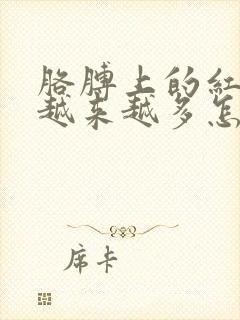 胳膊上的红
越来越多怎
席卡